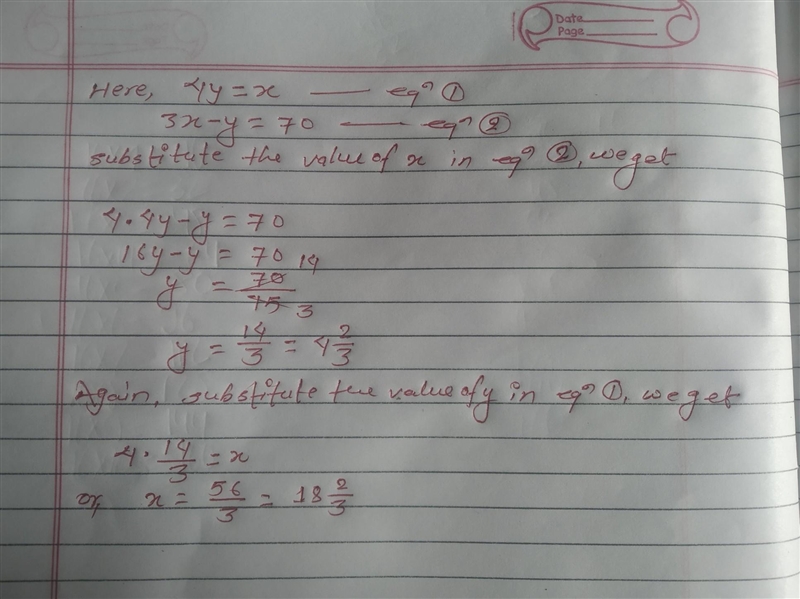 Date
Page
Here, 4y = x — eqⁿ ①
3x - y = 70 — eqⁿ ②
substitute the value of x in eqⁿ ②, we get
4 • 4y - y = 70
16y - y = 70
y = 70/15 14 3
y = 14/3 = 4 2/3
Again, substitute the value of y in eqⁿ ①, we get
4 • 14/3 = x
or, x = 56/3 = 18 2/3